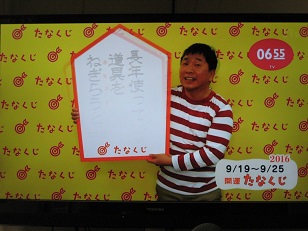 長年使って
道具を
ねぎらう
たなくじ
0655
2016
9/19〜9/25
開運 たなくじ
たなくじ
たなくじ
たなくじ
たなくじ
たなくじ
たなくじ